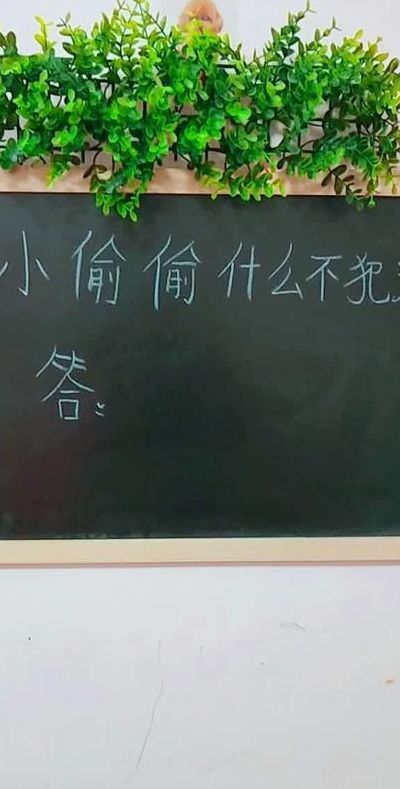 小偷偷什么不犯
答：